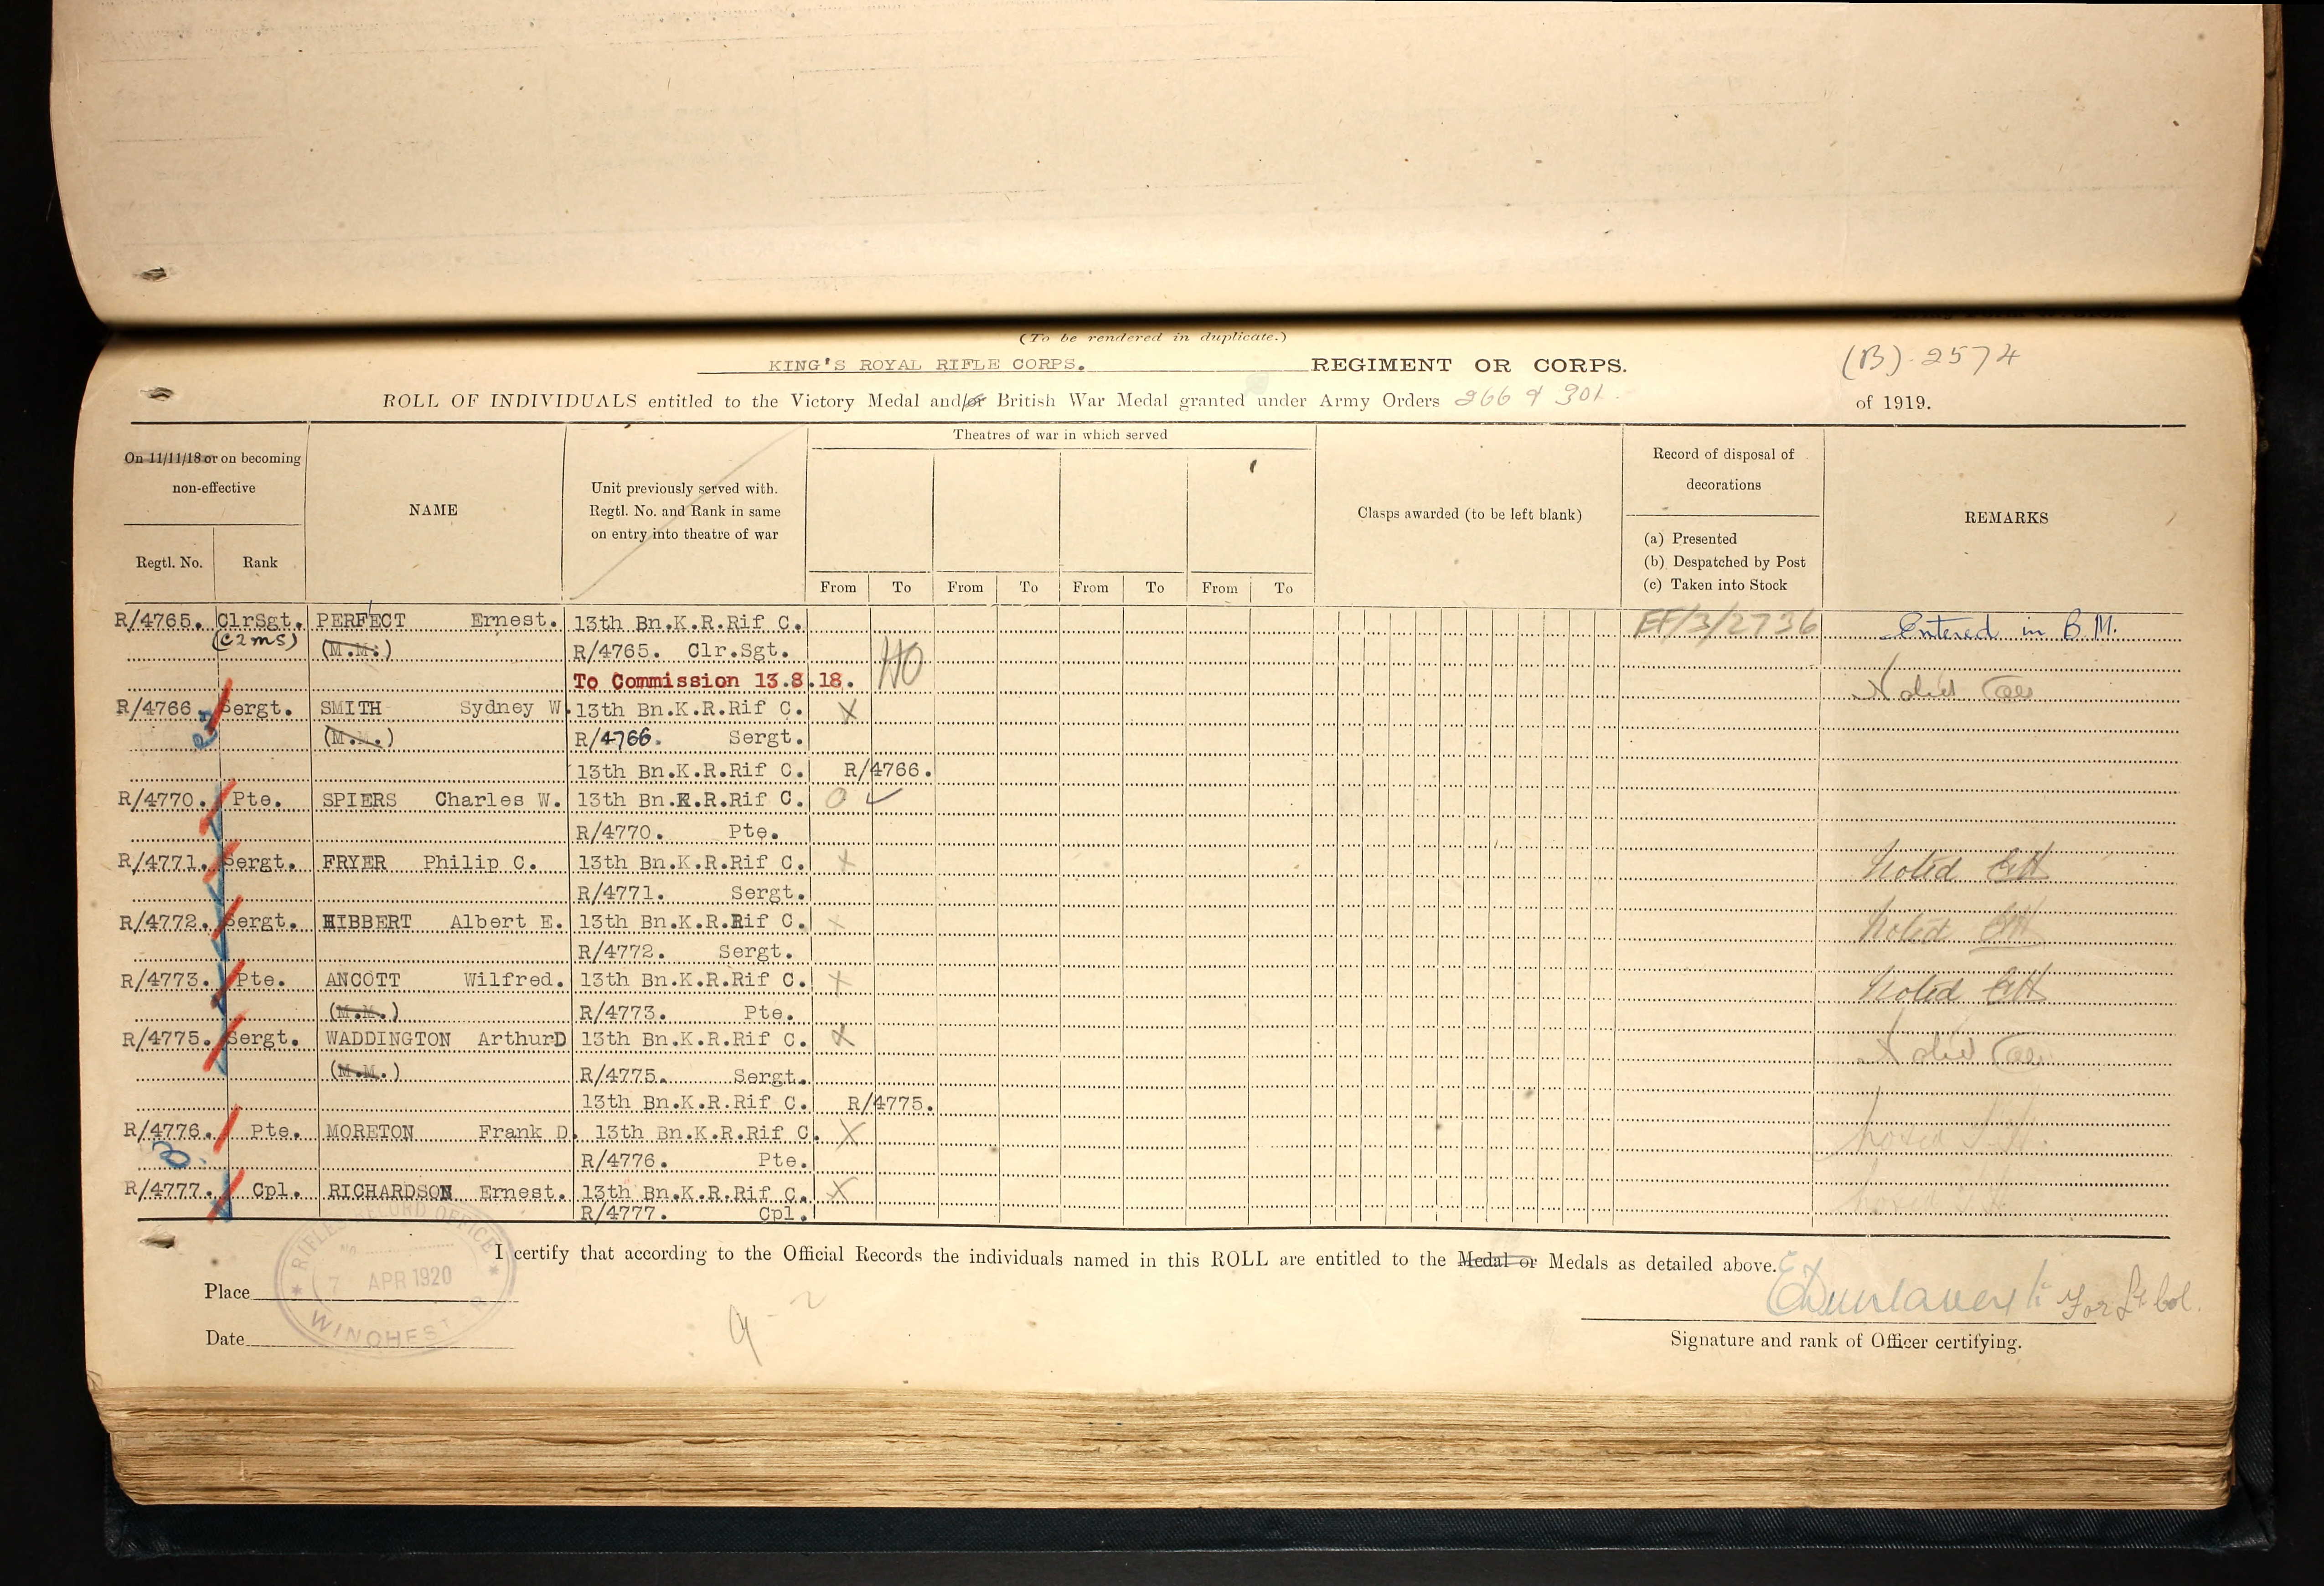 (To be rendered in duplicate.)
KING'S ROYAL RIFLE CORPS. REGIMENT OR CORPS. (B). 2574
ROLL OF INDIVIDUALS entitled to the Victory Medal and/or British War Medal granted under Army Orders 266 & 301. of 1919.
On 11/11/18 or on becoming non-effective
Regtl. No.
Rank
NAME
Unit previously served with.
Regtl. No. and Rank in same
on entry into theatre of war
Theatres of war in which served
From To From To From To From To
Clasps awarded (to be left blank)
Record of disposal of
decorations
(a) Presented
(b) Despatched by Post
(c) Taken into Stock
REMARKS
R/4765. ClrSgt. PERFECT Ernest. 13th Bn.K.R.Rif C. EF/3/2736 Entered in B.M.
(C2MS) (M.M.) R/4765. Clr.Sgt. HO
To Commission 13.8.18.
R/4766. Sergt. SMITH Sydney W. 13th Bn.K.R.Rif C. X
(M.M.) R/4766. Sergt.
13th Bn.K.R.Rif C. R/4766.
R/4770. Pte. SPIERS Charles W. 13th Bn.K.R.Rif C. O ✓
R/4770. Pte.
R/4771. Sergt. FRYER Philip C. 13th Bn.K.R.Rif C. X Noted
R/4771. Sergt.
R/4772. Sergt. HIBBERT Albert E. 13th Bn.K.R.Rif C. X Noted
R/4772. Sergt.
R/4773. Pte. ANCOTT Wilfred. 13th Bn.K.R.Rif C. X Noted
(M.M.) R/4773. Pte.
R/4775. Sergt. WADDINGTON ArthurD 13th Bn.K.R.Rif C. X
(M.M.) R/4775. Sergt.
13th Bn.K.R.Rif C. R/4775.
R/4776. Pte. MORETON Frank D. 13th Bn.K.R.Rif C. X
R/4776. Pte.
R/4777. Cpl. RICHARDSON Ernest. 13th Bn.K.R.Rif C. X
R/4777. Cpl.
I certify that according to the Official Records the individuals named in this ROLL are entitled to the Medal or Medals as detailed above.
RIFLES RECORD OFFICE
No.
7 APR 1920
WINCHESTER
Place
Date
For Lt Col.
Signature and rank of Officer certifying.